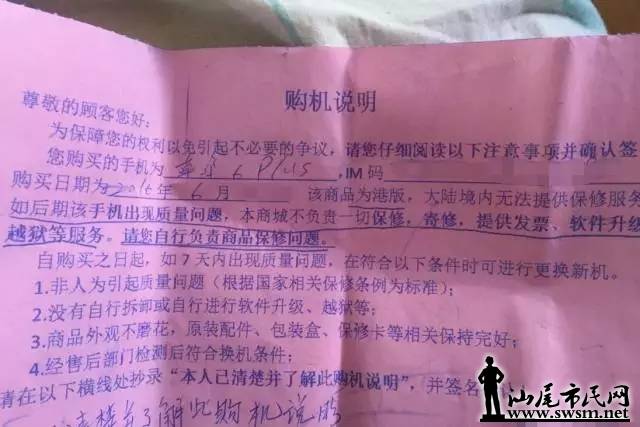 购机说明
尊敬的顾客您好：
为保障您的权利以免引起不必要的争议，请您仔细阅读以下注意事项并确认签
您购买的手机为 6 Plus，IM码
购买日期为2016年6月 该商品为港版，大陆境内无法提供保修服务
如后期该手机出现质量问题，本商城不负责一切保修，寄修，提供发票、软件升级
越狱等服务。请您自行负责商品保修问题。
自购买之日起，如7天内出现质量问题，在符合以下条件时可进行更换新机。
1.非人为引起质量问题（根据国家相关保修条例为标准）；
2.没有自行拆卸或自行进行软件升级、越狱等；
3.商品外观不磨花，原装配件、包装盒、保修卡等相关保持完好；
4.经售后部门检测后符合换机条件；
请在以下横线处抄录“本人已清楚并了解此购机说明”，并签名
清楚并了解此购机说明
汕尾市民网
www.swsm.net